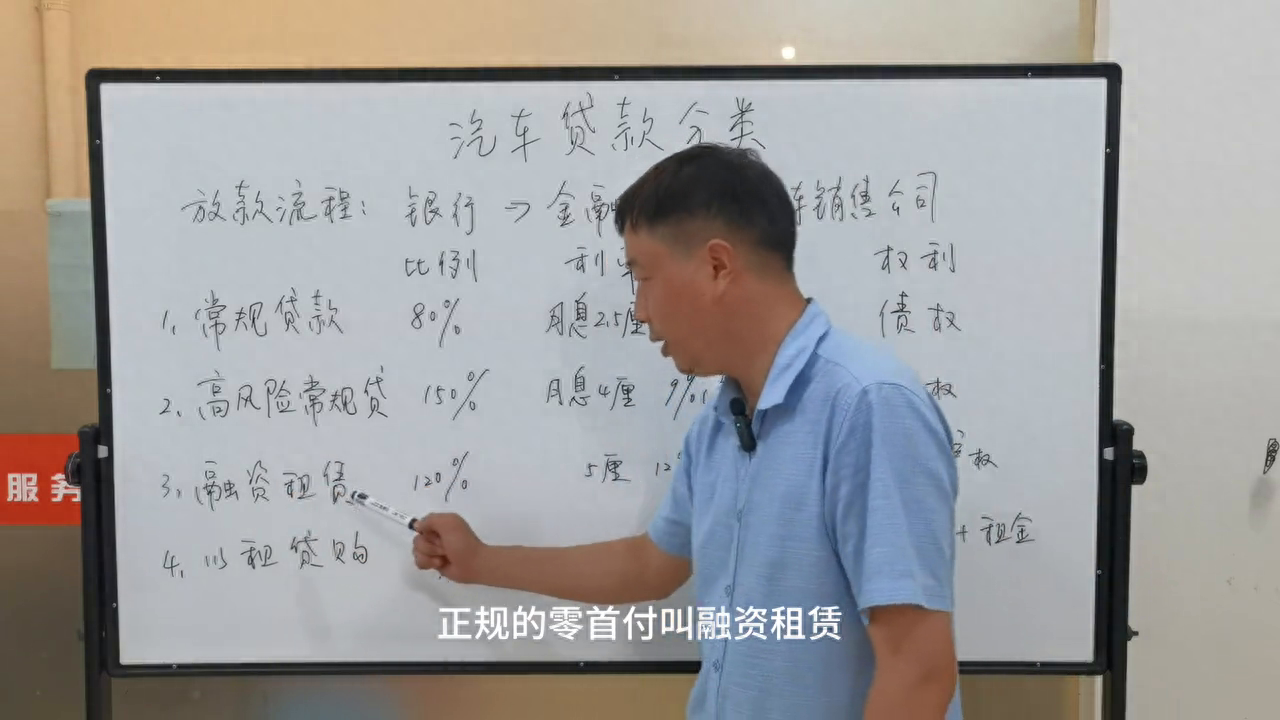 汽车贷款分类
放款流程: 银行 → 金融 车销售公司
比例 利率 权利
1、常规贷款 80% 月息2.5厘 债权
2、高风险常规贷 150% 月息4厘 9% 权
3、融资租赁 120% 5厘 12% 权
4、以租贷购 + 租金
服务
正规的零首付叫融资租赁